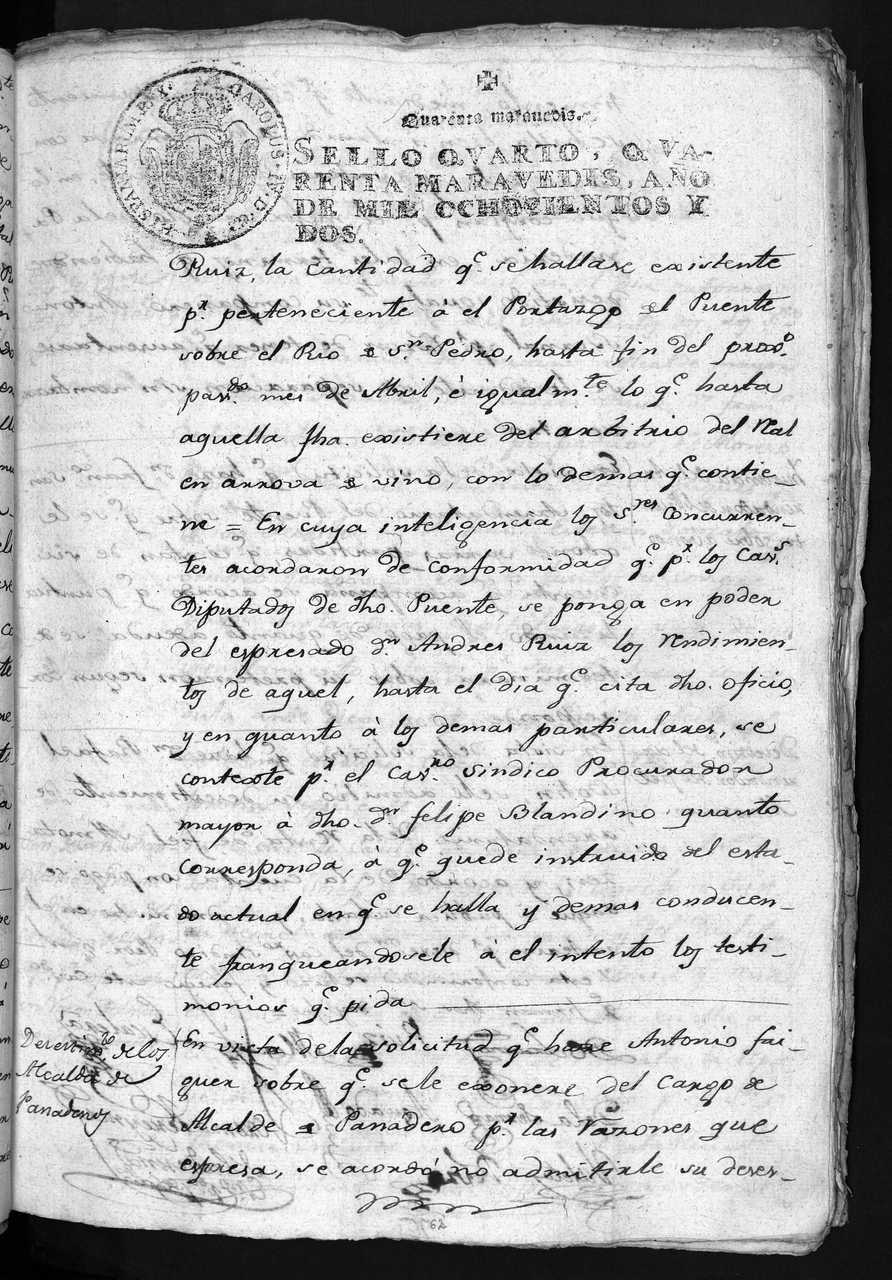 CAROLUS IV D. G. HISPANIARUM REX
Quarenta maravedis.
SELLO QVARTO, QVA-
RENTA MARAVEDIS, AÑO
DE MIL OCHOCIENTOS Y
DOS.
Ruiz, la cantidad q.e se hallase existente
p.r perteneciente à el Portazgo del Puente
sobre el Rio de S.n Pedro, hasta fin del proxô.
pas.do mes de Abril, è igualm.te lo q.e hasta
aquella fha. existiere del arbitrio del Real
en arrova de vino, con lo demas q.e contie-
ne = En cuya inteligencia los S.res concurren-
tes acordaron de conformidad q.e p.r los Cav.s
Diputados de dho. Puente, se ponga en poder
del espresado d.n Andres Ruiz los rendimien-
tos de aquel, hasta el dia q.e cita dho. oficio,
y en quanto à los demas particulares, se
conteste p.r el Cav.ro Sindico Procurador
mayor à dho. d.n Felipe Blandino quanto
corresponda, à q.e quede instruido del esta-
do actual en q.e se halla y demas conducen-
te franqueandosele à el intento los testi-
monios q.e pida
Desestim.to de los
Alcalde de
Panaderos
En vista de la solicitud q.e hace Antonio Fai-
quer sobre q.e se le exonere del cargo de
Alcalde de Panadero p.r las razones que
espresa, se acordó no admitirle su deses-
62